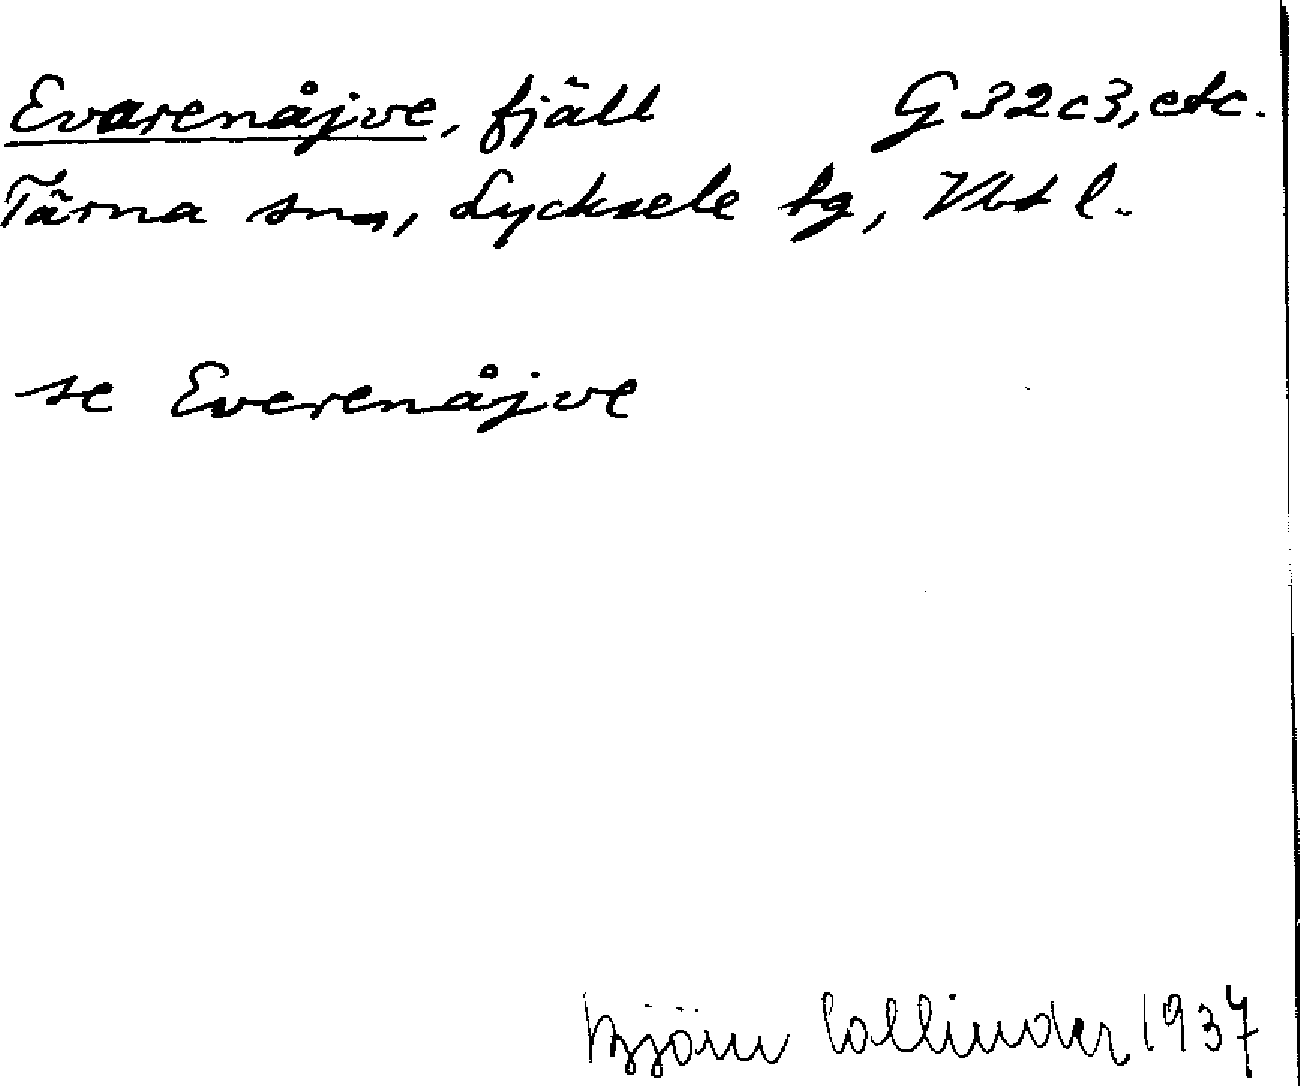 Evarenåjve, fjäll G 32c3, etc.
Tärna sn, Lycksele lg, Vbt l.
se Everenåjve
Björn Collinder 1937